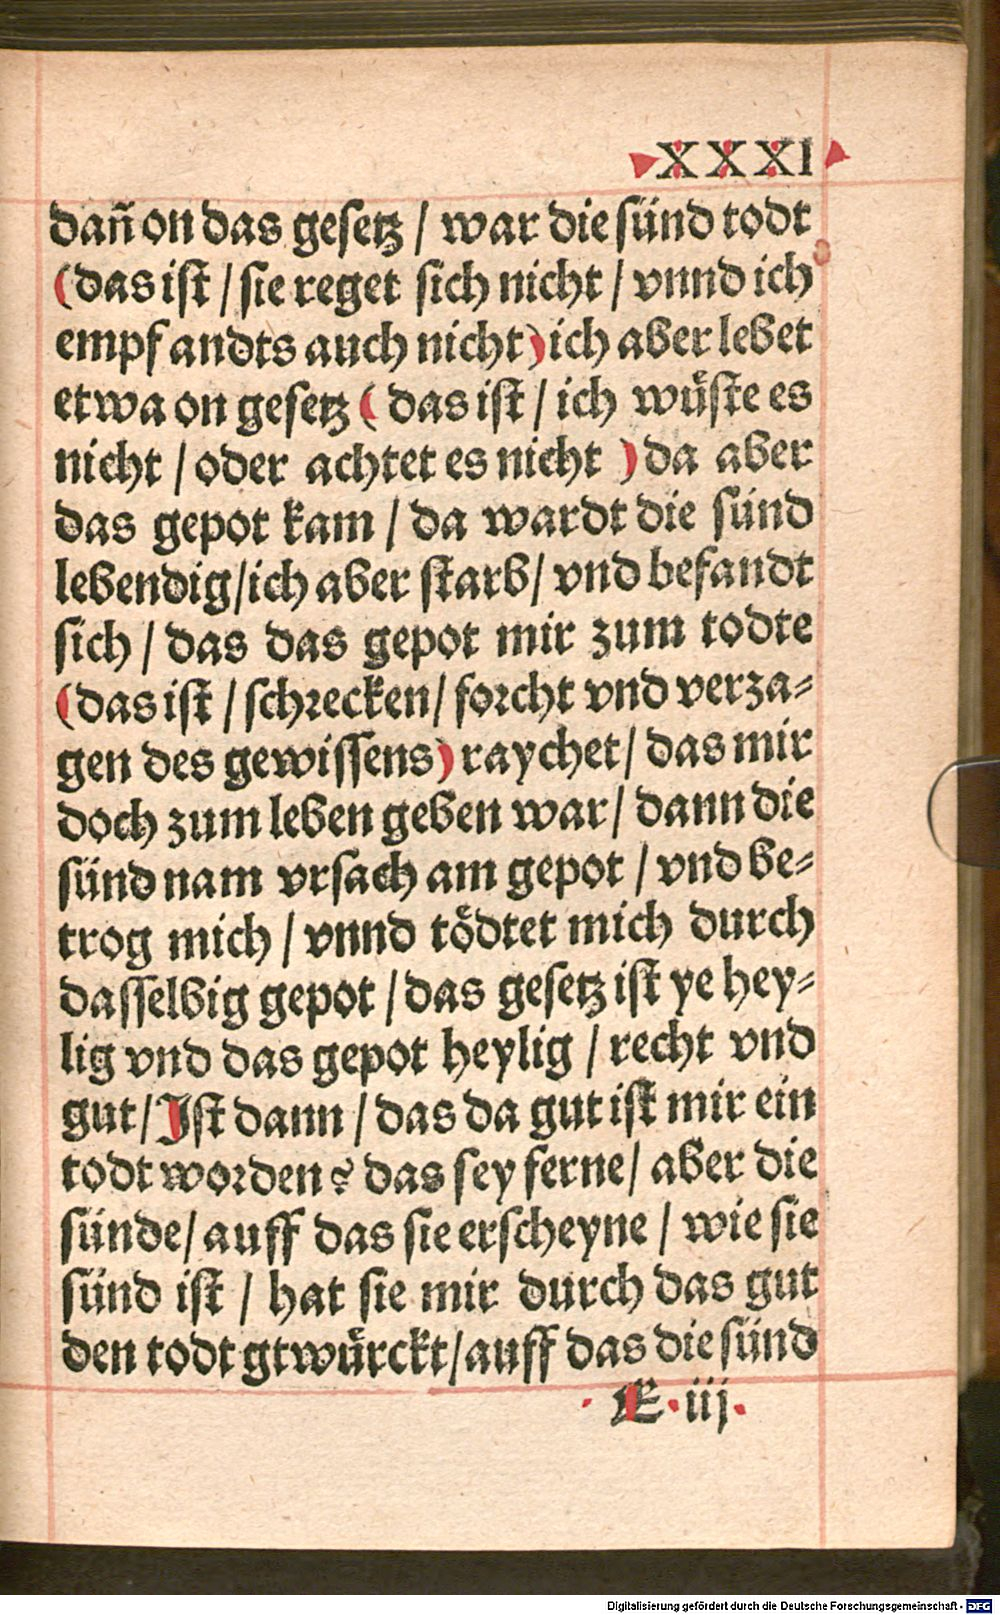 XXXI
dañ on das gesetz / war die sünd todt
(das ist / sie reget sich nicht / vnnd ich
empfandts auch nicht) ich aber lebet
etwa on gesetz (das ist / ich wuͤste es
nicht / oder achtet es nicht) da aber
das gepot kam / da wardt die sünd
lebendig / ich aber starb / vnd befandt
sich / das das gepot mir zum todte
(das ist / schrecken / forcht vnd verza⸗
gen des gewissens) raychet / das mir
doch zum leben geben war / dann die
sünd nam vrsach am gepot / vnd be⸗
trog mich / vnnd toͤdtet mich durch
dasselbig gepot / das gesetz ist ye hey⸗
lig vnd das gepot heylig / recht vnd
gut / Ist dann / das da gut ist mir ein
todt worden? das sey ferne / aber die
sünde / auff das sie erscheyne / wie sie
sünd ist / hat sie mir durch das gut
den todt gtwuͤrckt / auff das die sünd
E iij
Digitalisierung gefördert durch die Deutsche Forschungsgemeinschaft - DFG